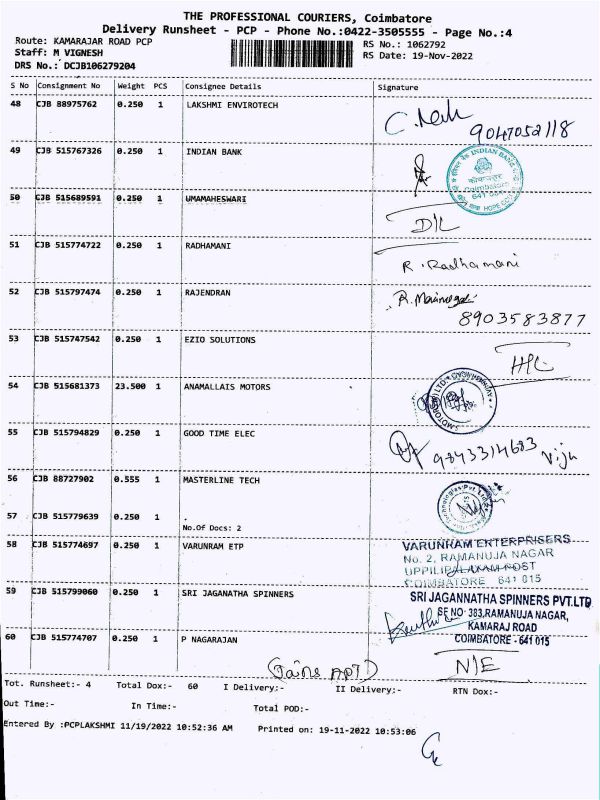 THE PROFESSIONAL COURIERS, Coimbatore
Delivery Runsheet - PCP - Phone No.:0422-3505555 - Page No.:4
Route: KAMARAJAR ROAD PCP RS No.: 1062792
Staff: M VIGNESH RS Date: 19-Nov-2022
DRS No.: DCJB106279204
S No Consignment No Weight PCS Consignee Details Signature
48 CJB 88975762 0.250 1 LAKSHMI ENVIROTECH
9047052118
49 CJB 515767326 0.250 1 INDIAN BANK INDIAN BANK
Coimbatore
641 004
50 CJB 515689591 0.250 1 UMAMAHESWARI
D/L
51 CJB 515774722 0.250 1 RADHAMANI
R. Radhamani
52 CJB 515797474 0.250 1 RAJENDRAN
8903583877
53 CJB 515747542 0.250 1 EZIO SOLUTIONS
54 CJB 515681373 23.500 1 ANAMALLAIS MOTORS
55 CJB 515794829 0.250 1 GOOD TIME ELEC
9843314683 Viju
56 CJB 88727902 0.555 1 MASTERLINE TECH
57 CJB 515779639 0.250 1 .
No.Of Docs: 2
58 CJB 515774697 0.250 1 VARUNRAM ETP VARUNRAM ENTERPRISERS
No. 2, RAMANUJA NAGAR
COIMBATORE 641 015
59 CJB 515799060 0.250 1 SRI JAGANNATHA SPINNERS SRI JAGANNATHA SPINNERS PVT.LTD
SF NO 383,RAMANUJA NAGAR,
KAMARAJ ROAD
COIMBATORE - 641 015
60 CJB 515774707 0.250 1 P NAGARAJAN
(Jains APT) N/E
Tot. Runsheet:- 4 Total Dox:- 60 I Delivery:- II Delivery:- RTN Dox:-
Out Time:- In Time:- Total POD:-
Entered By :PCPLAKSHMI 11/19/2022 10:52:36 AM Printed on: 19-11-2022 10:53:06